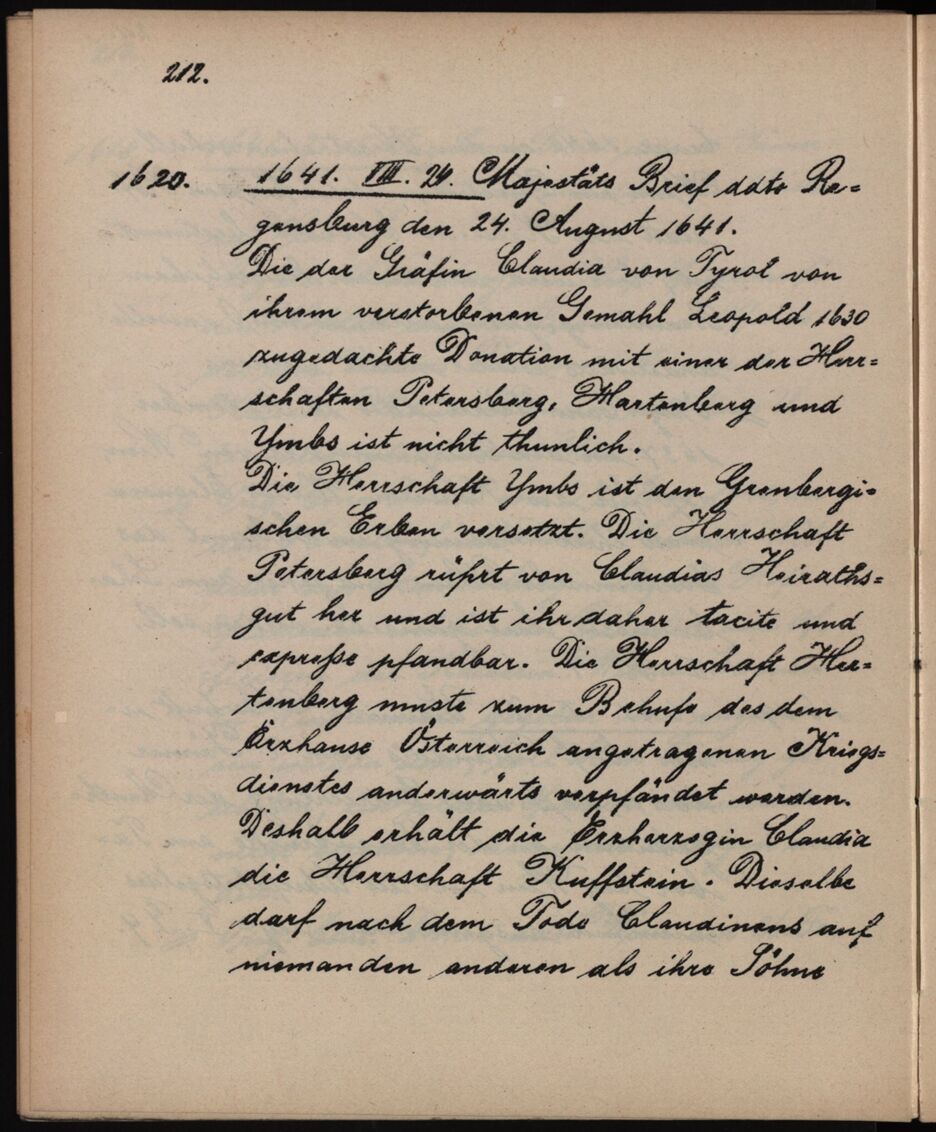 212.
1620. 1641. VIII. 24. Majestäts Brief ddto Re=
gensburg den 24. August 1641.
Die der Gräfin Claudia von Tyrol von
ihrem verstorbenen Gemahl Leopold 1630
zugedachte Donation mit einer der Herr=
schaften Petersberg, Hartenberg und
Ymbs ist nicht thunlich.
Die Herrschaft Ymbs ist den Grenbergi=
schen Erben versetzt. Die Herrschaft
Petersberg rührt von Claudias Heiraths=
gut her und ist ihr daher tacite und
expreße pfandbar. Die Herrschaft Her=
tenberg muste zum Behufe des dem
Erzhause Österreich angetragenen Kriegs=
dienstes anderwärts verpfändet werden.
Deshalb erhält die Erzherzogin Claudia
die Herrschaft Kuffstein. Dieselbe
darf nach dem Tode Claudinens auf
niemanden anderen als ihre Söhne